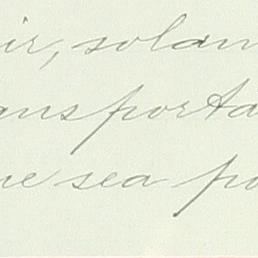 ir, solan
ansporta
ne sea po